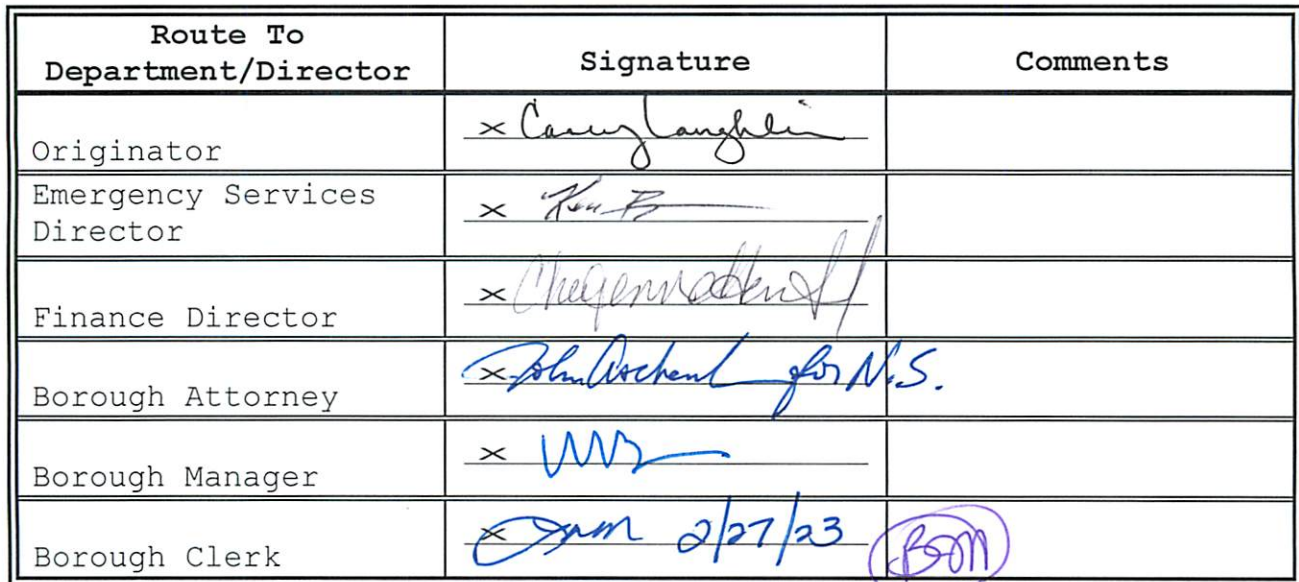 Route To
Department/Director
Signature
Comments
Originator
× Casey Laughlin
Emergency Services
Director
× Ken
Finance Director
×
Borough Attorney
× John Aschenb for N.S.
Borough Manager
×
Borough Clerk
× 2/27/23